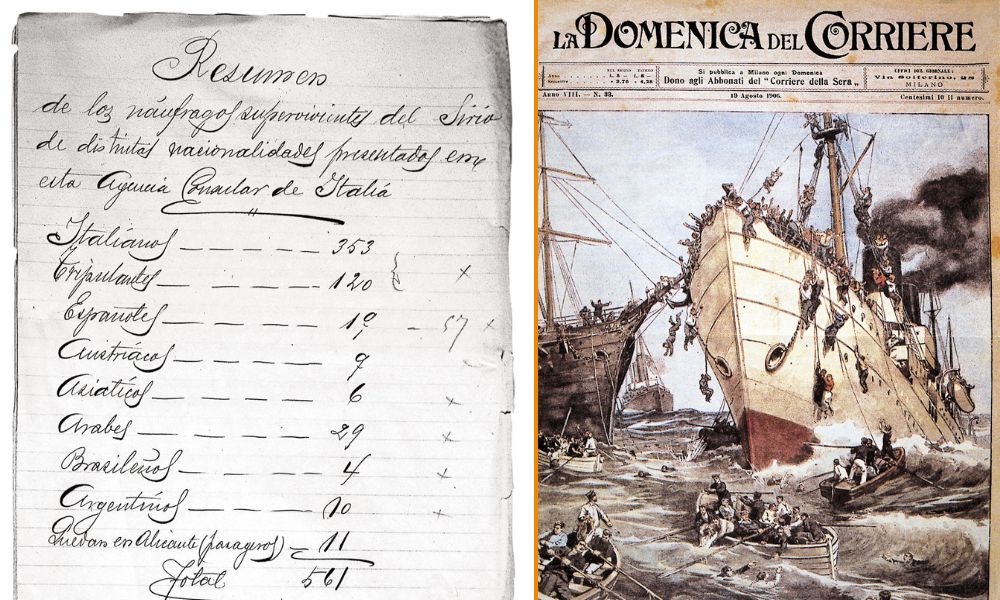 Resumen
de los náufragos supervivientes del Sirio
de distintas nacionalidades presentados en
esta Agencia Consular de Italia
Italianos — — — — 353
Tripulantes — — — — 120 } x
Españoles — — — — 19 — 57 x
Austriacos — — — — 9
Asiaticos — — — — 6 x
Arabes — — — — 29 x
Brasileños — — — — 4 x
Argentinos — — — — 10 x
Quedan en Alicante (pasageros) — 11
Total 561
LA DOMENICA DEL CORRIERE
NEL REGNO ESTERO
Anno L. 5 — L. 8 —
Semestre
Si pubblica a Milano ogni Domenica
Dono agli Abbonati del "Corriere della Sera„
UFFICI DEL GIORNALE:
Via Solferino, 28
MILANO
Anno VIII. — N. 33. 19 Agosto 1906. Centesimi 10 il numero.